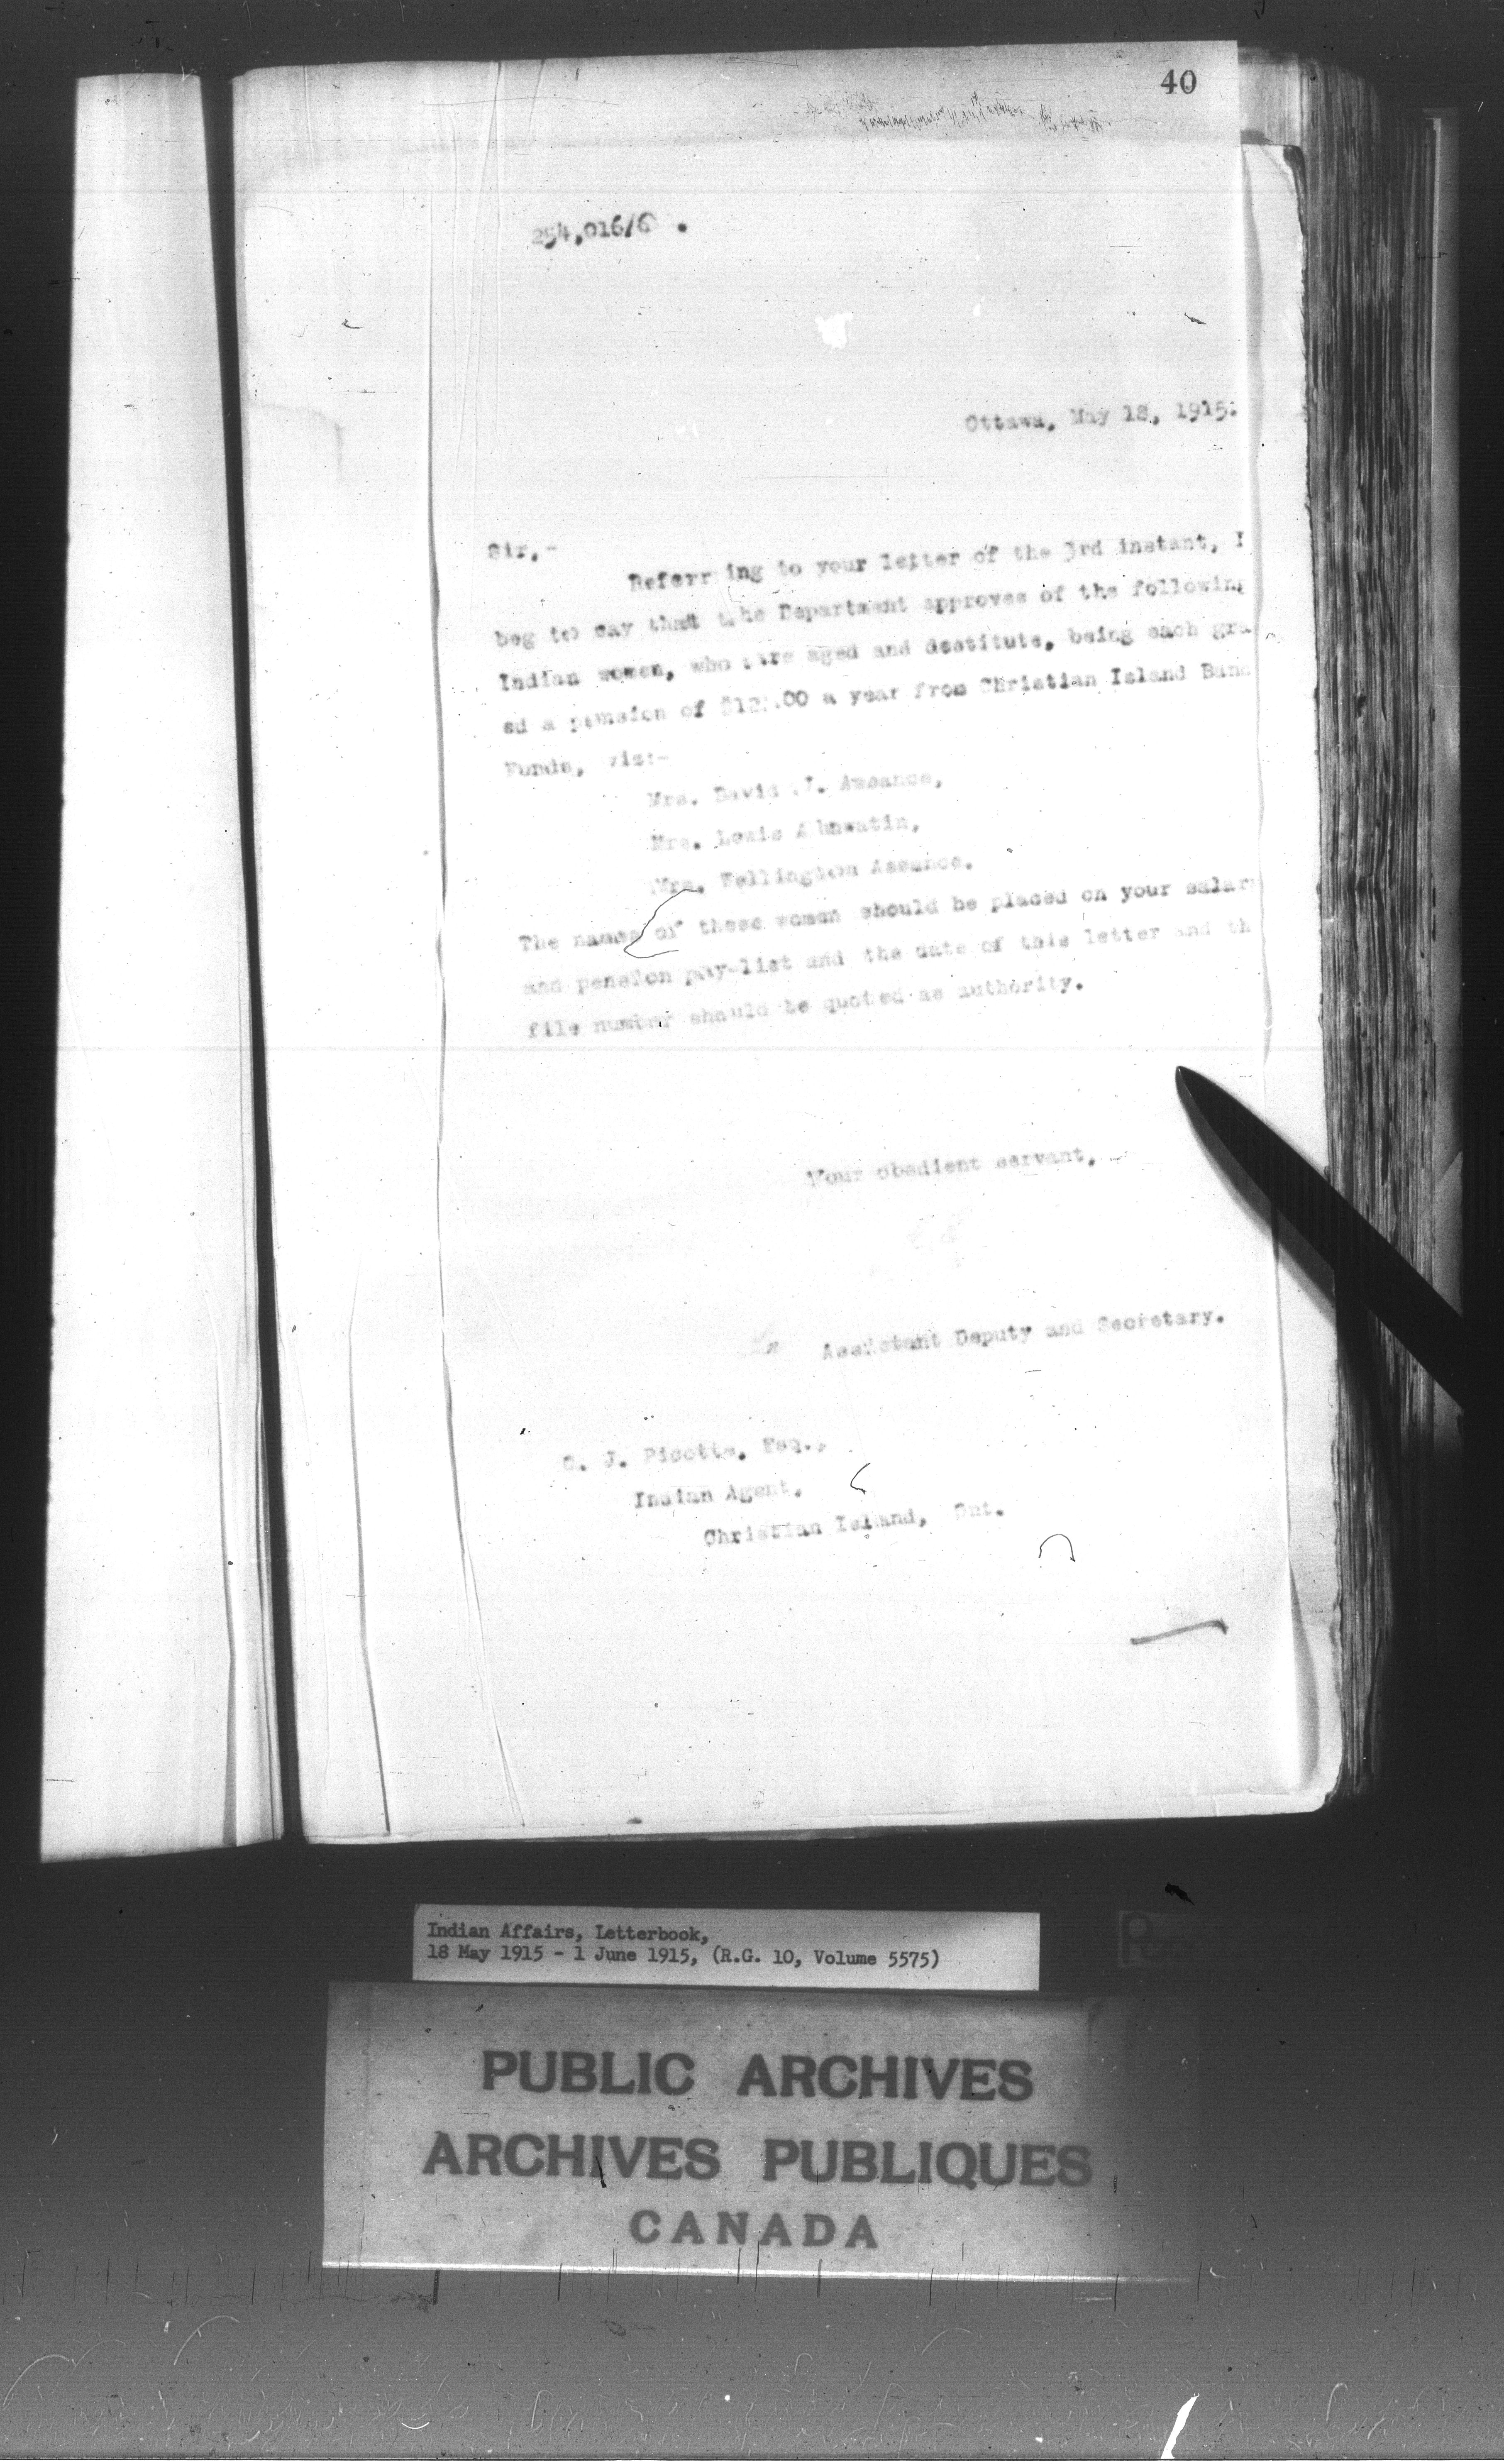 40
254,016/6 .
Ottawa, May 18, 1915.
Sir,-
Referring to your letter of the 3rd instant, I
beg to say that the Department approves of the following
Indian women, who are aged and destitute, being each gra
ed a pension of $12.00 a year from Christian Island Band
Funds, viz:-
Mrs. David J. Assance,
Mrs. Lewis
Mrs. Wellington Assance.
The names of these women should be placed on your salary
and pension pay-list and the date of this letter and th
file number should be quoted as authority.
Your obedient servant,
Assistant Deputy and Secretary.
C. J. Picotte, Esq.,
Indian Agent,
Christian Island, Ont.
Indian Affairs, Letterbook,
18 May 1915 - 1 June 1915, (R.G. 10, Volume 5575)
PUBLIC ARCHIVES
ARCHIVES PUBLIQUES
CANADA